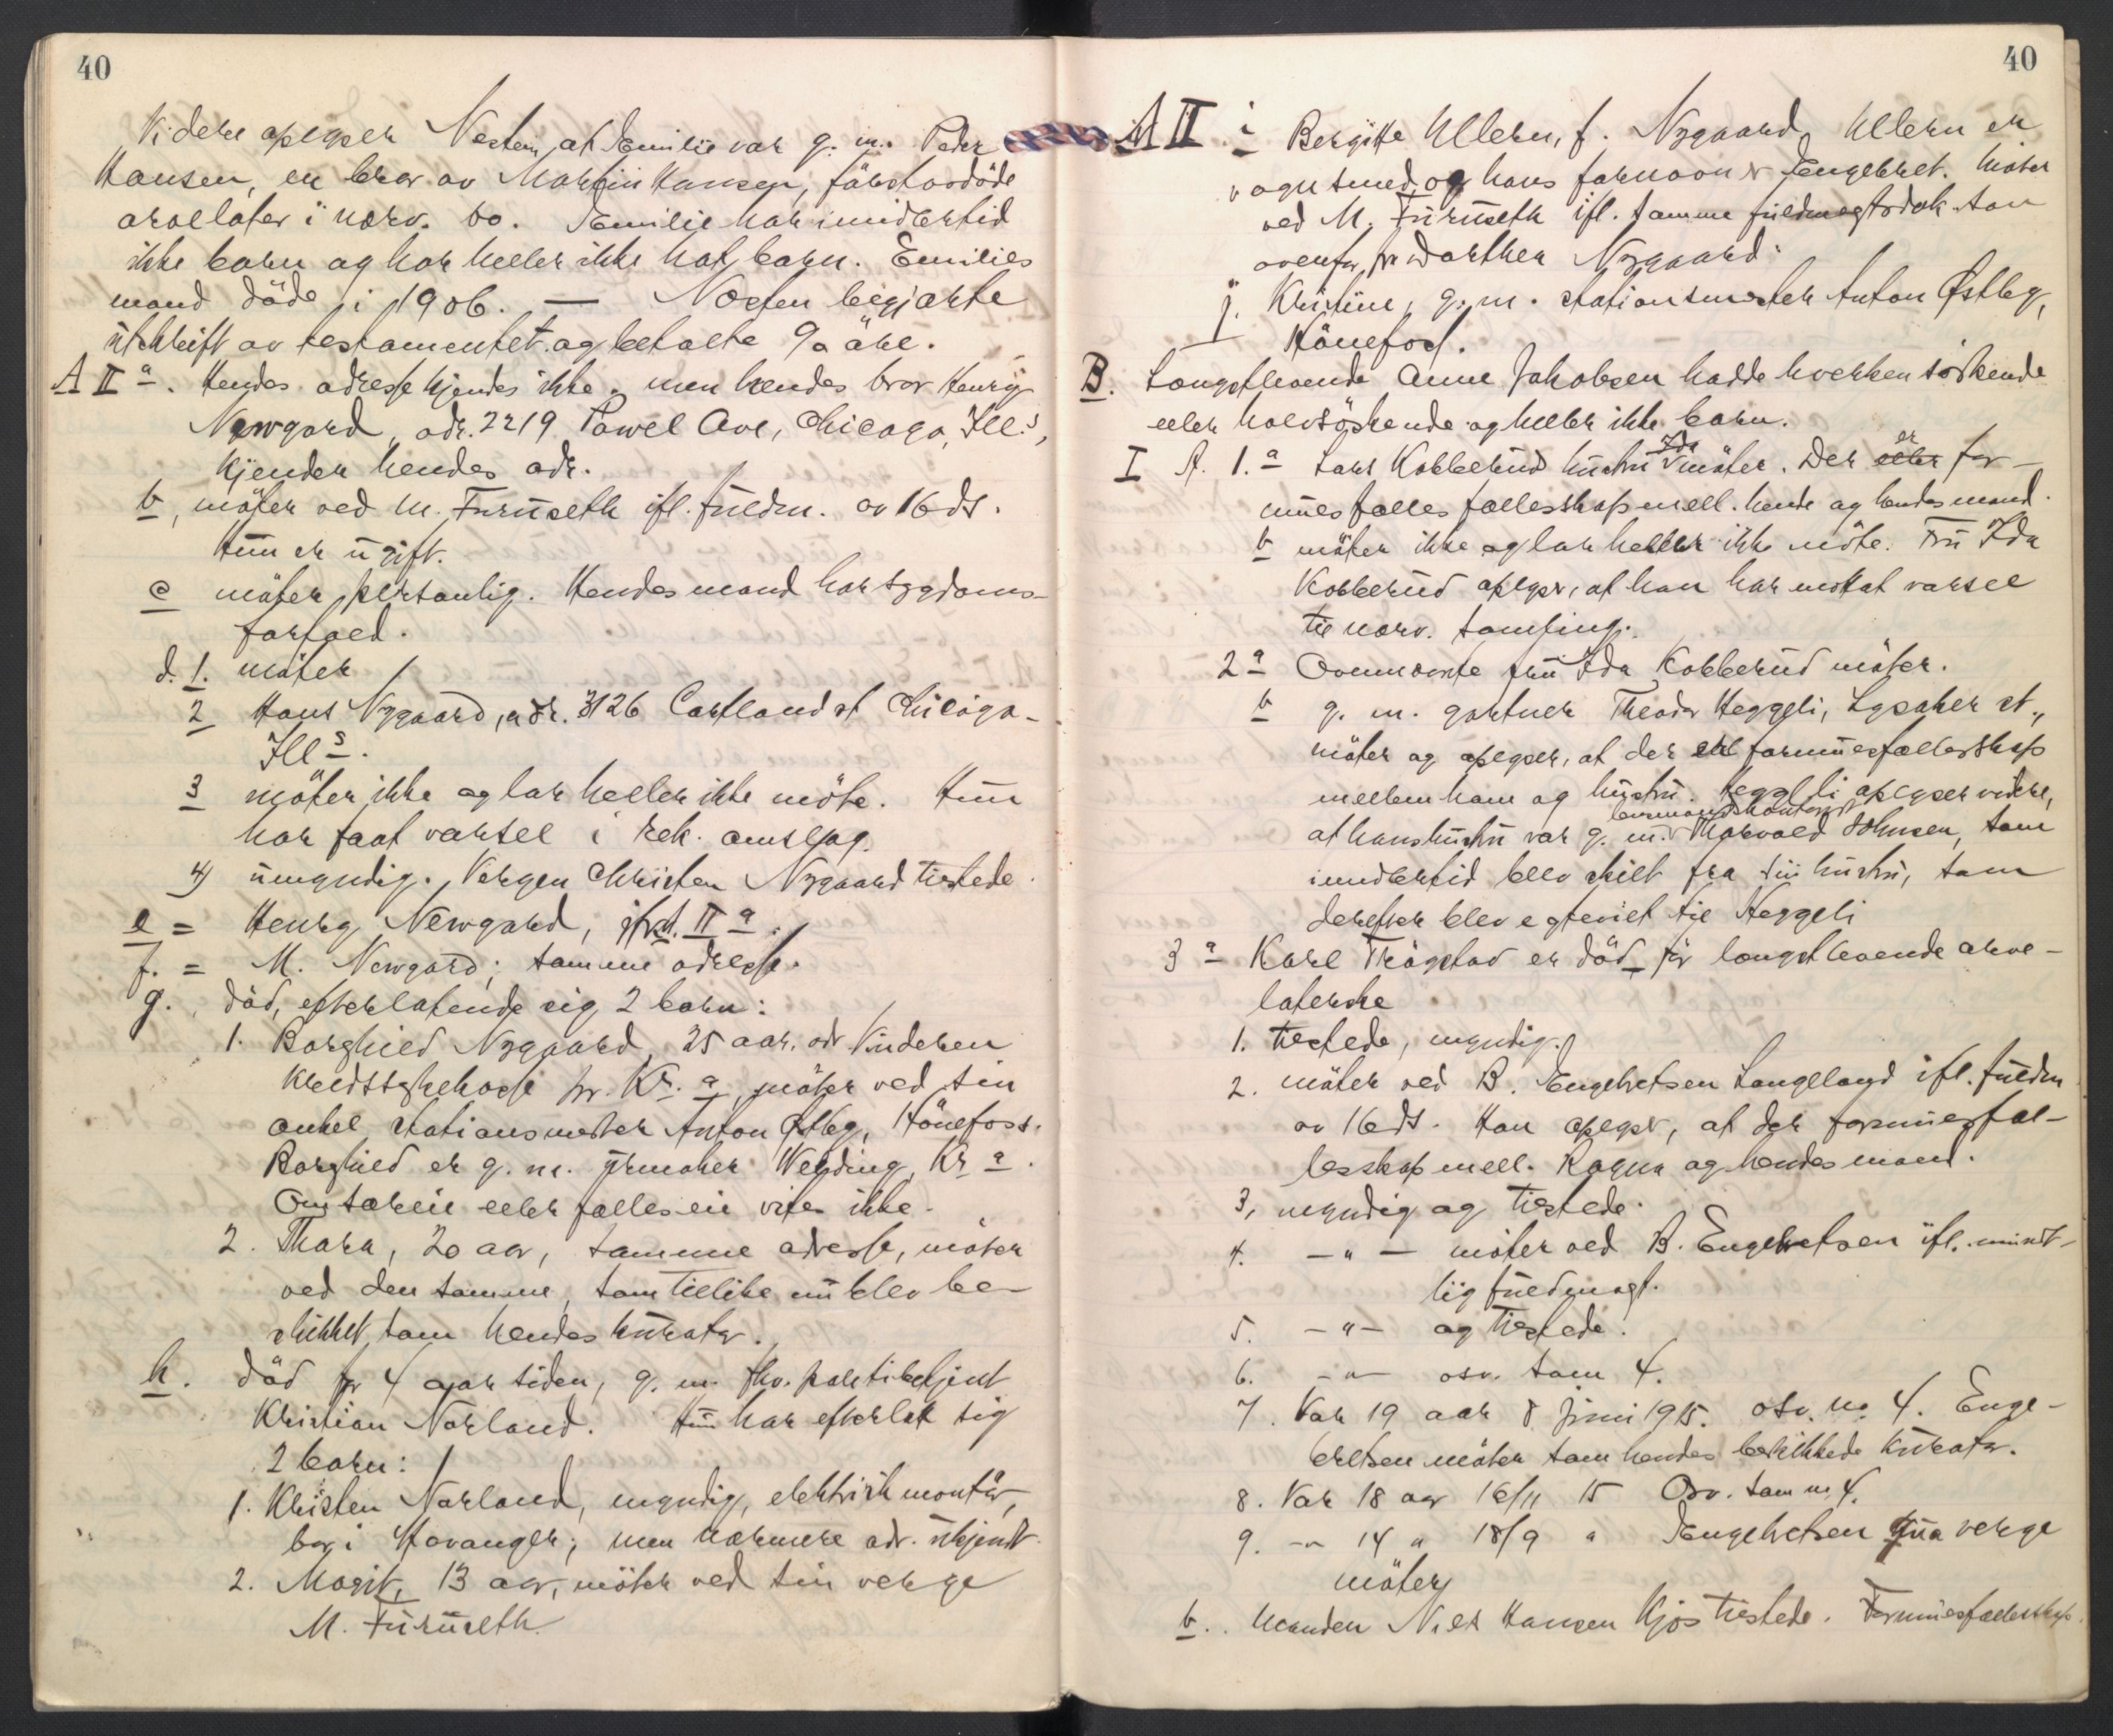 40
Videre oplyser Nestein, at Emilie var g. m. Peder
Hansen, en bror av Martin Hansen, förstavdöde
arvelater i nærv. bo. Emilie har imidlertid
ikke barn og har heller ikke hat barn. Emilies
mand döde i 1906. — Næsten begjærte
utskrift av testamentet og betalte 90 öre.
A II a. Hendes adresse kjendes ikke, men hendes bror Henry
Newgard, adr. 2219 Powel Ave, Chicago, Ill.s,
kjender hendes adr.
b, möter ved M. Furuseth ifl. fuldm. av 16 ds.
Hun er ugift.
c möter personlig. Hendes mand har sygdoms-
forfald.
d. 1. möter
2 Hans Nygaard, adr. 3126 Cortland st Chicago-
Ill s.
3 möter ikke og lar heller ikke möte. Hun
har faat varsel i rek. omslag.
4) umyndig. Vergen Christen Nygaard tilstede.
e = Henry Newgard, jfr. A. II a.
f. = M. Newgard; samme adresse.
g. död, efterlatende sig 2 barn:
1. Borghild Nygaard, 25 aar. adr Vinderen
Kredssykehose pr. Kr. a, möter ved sin
onkel stationsmester Anton Østby, Hönefoss.
Borghild er g. m. urmaker Weyding, Kr a.
Om særeie eller fælleseie vites ikke.
2. Thora, 20 aar, samme adresse, möter
ved den samme, som tillike nu blev be-
skikket som hendes kurator.
h. död for 4 aar siden, g. m. fhv. politibetjent
Kristian Norland. Hun har efterlat sig
2 barn:
1. Kristen Norland, myndig, elektrisk montör,
bor i Stavanger; men nærmere adr. ukjendt
2. Margit, 13 aar, möter ved sin verge
M. Furuseth.
40
A II i Bergitte Ullern, f. Nygaard, Ullern er
vognsmed og hans fornavn er Engebret. Möter
ved M. Furuseth ifl. samme fuldmagtsdok. som
ovenfor fru Dorthea Nygaard.
j. Kristine, g. m. stationsmester Anton Østby,
Hönefoss.
B. Længstlevende Anne Jakobsen hadde hverken söskende
eller halvsöskende og heller ikke barn.
I A. 1. a Lars Kobberud hustru Ida möter. Der eller er for-
mues fælles fællesskap mell. hende og hendes mand.
b möter ikke og lar heller ikke möte. Fru Ida
Kobberud oplyser, at han har mottat varsel
til nærv. samling.
2 a Ovennævnte fru Ida Kobberud möter.
b g. m. gartner Theodor Heggeli, Lysaker st.,
möter og oplyser, at der er formuesfællesskap
mellem ham og hustru. Heggeli oplyser videre,
at hans hustru var g. m. lensmandskontorist Thorvald Johnsen, som
imidlertid blev skilt fra sin hustru, som
derefter blev egteviet til Heggeli
3 a Karl Trögstad er död för længstlevende arve-
laterske
1. tilstede, myndig.
2. möter ved B. Engebretsen Langeland ifl. fuldm
av 16 ds. Han oplyser, at der formuesfæl-
lesskap mell. Ragna og hendes mand.
3, myndig og tilstede.
4. -"- möter ved B. Engebretsen ifl. mundt-
lig fuldmagt.
5. -"- og tilstede.
6. -"- osv. som 4.
7. Var 19 aar 8 juni 1915. osv. no 4. Enge-
bretsen möter som hendes beskikkede kurator.
8. Var 18 aar 16/11 15 Osv. som no 4.
9. -"- 14 " 18/9 " Engebretsen qua verge
möter
b. Manden Nils Hansen Kjos tilstede. Formuesfællesskap.